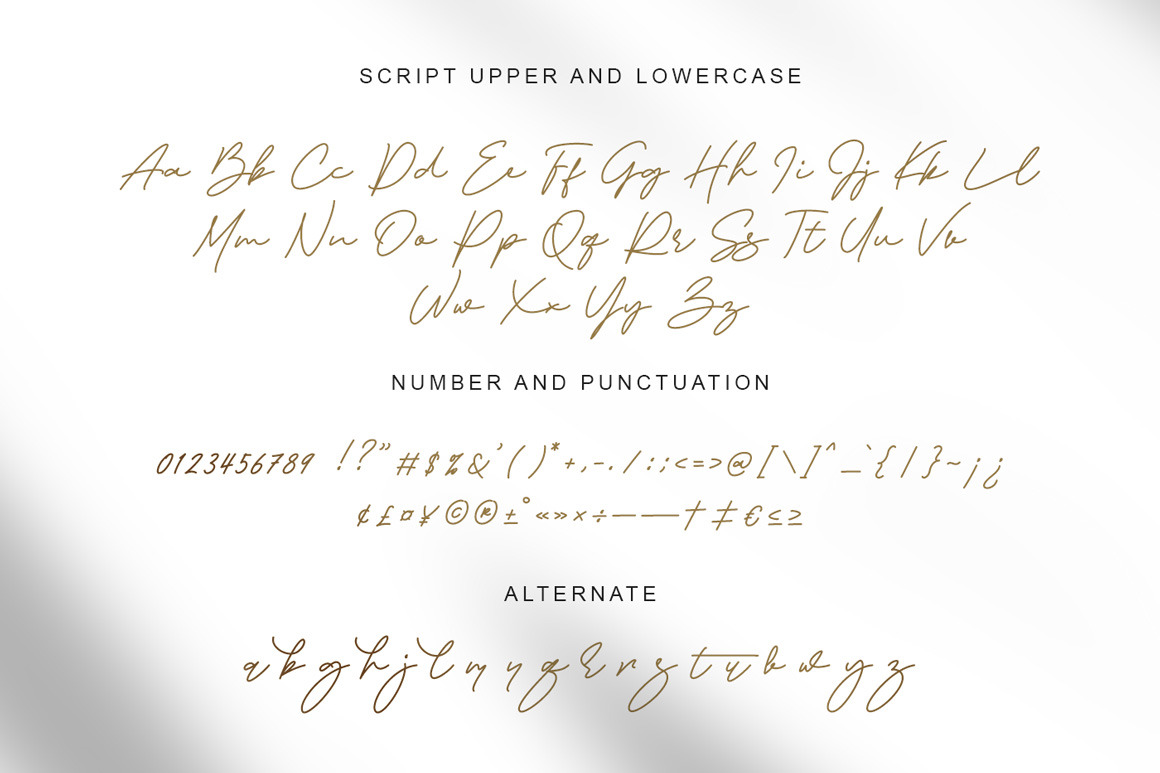 SCRIPT UPPER AND LOWERCASE
Aa Bb Cc Dd Ee Ff Gg Hh Ii Jj Kk Ll
Mm Nn Oo Pp Qq Rr Ss Tt Uu Vv
Ww Xx Yy Zz
NUMBER AND PUNCTUATION
0123456789 !?"#$%&'()*+,-./:;<=>@[\]^_`{|}~¡¿
¢£¤¥©®±°«»×÷–—†‡€≤≥
ALTERNATE
a k g h j l m n q r s t u b w y z